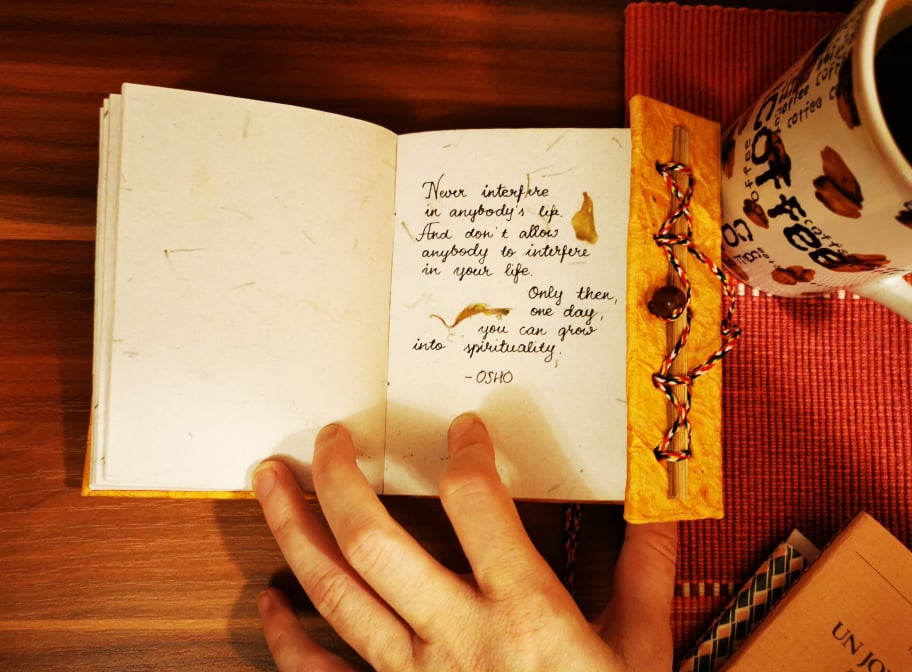 Never interfere
in anybody's life.
And don't allow
anybody to interfere
in your life.
Only then,
one day,
you can grow
into spirituality.
- OSHO
coffee
coffee
coffee
UN JO